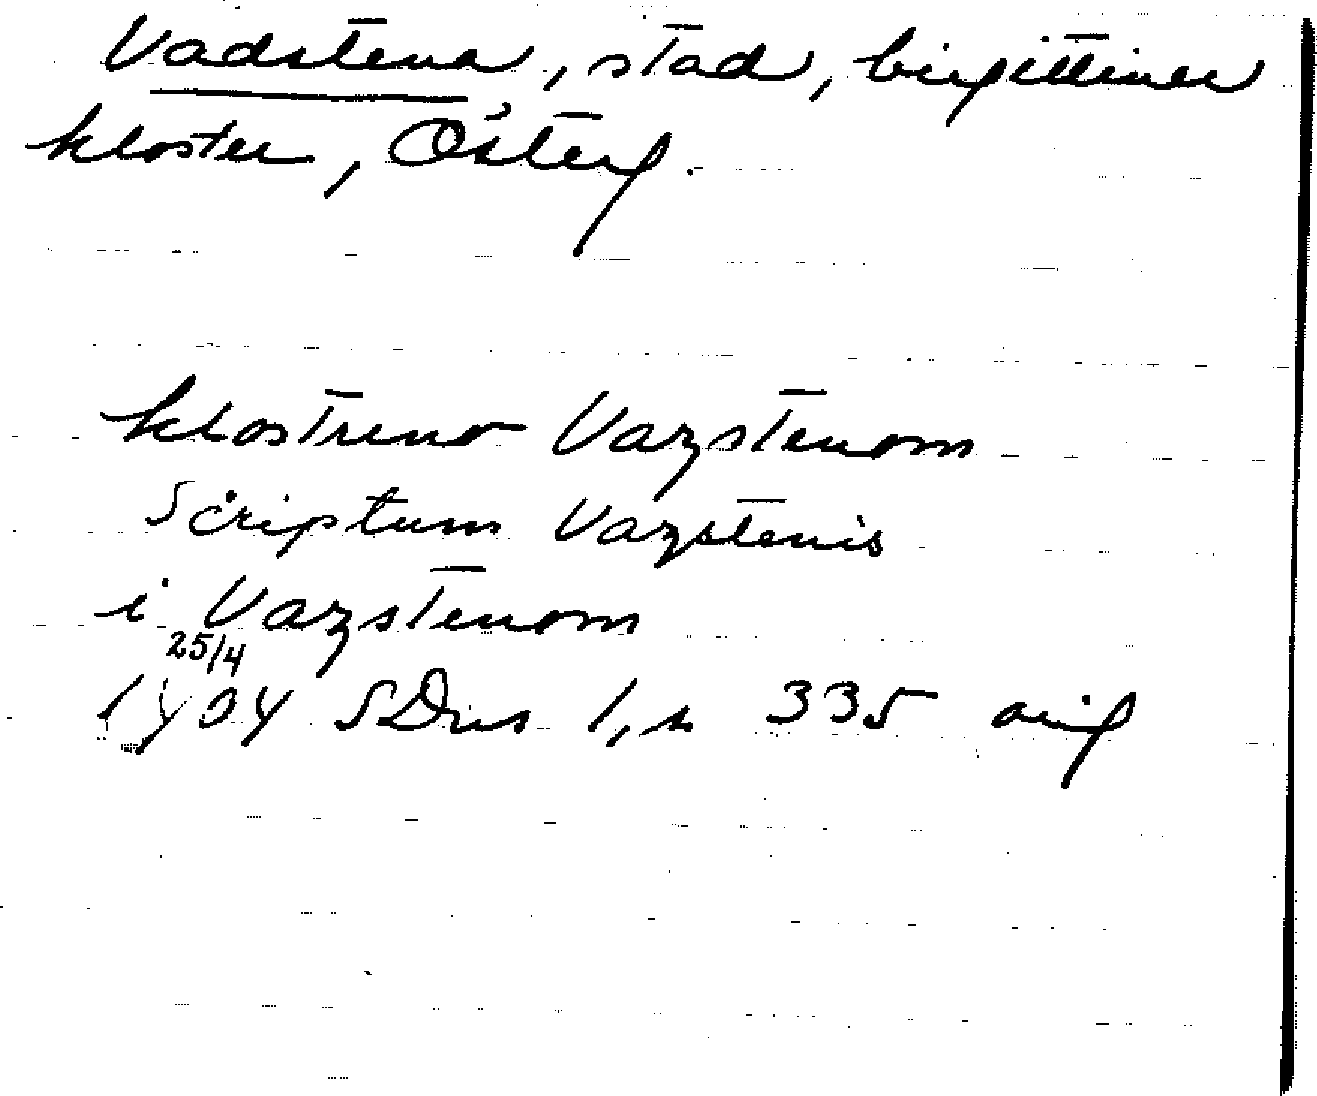 Vadstena, stad, birgittiner
kloster, Österg.
klostreno Vazstenom
Scriptum Vazstenis
i Vazstenom
25/4
1404 SDns 1, s 335 orig